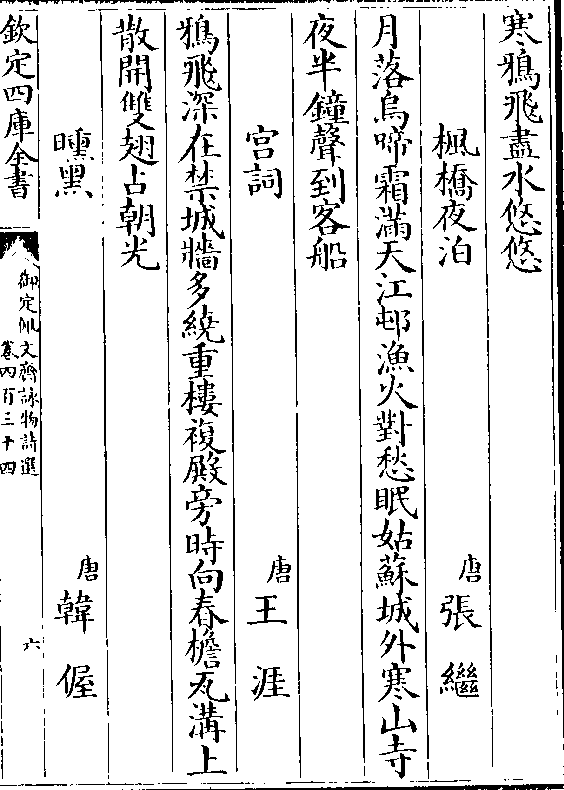 寒鴉飛盡水悠悠
楓橋夜泊 唐 張繼
月落烏啼霜滿天江邨漁火對愁眠姑蘇城外寒山寺
夜半鐘聲到客船
宫詞 唐 王涯
鴉飛深在禁城牆多繞重樓複殿旁時向春檐瓦溝上
散開雙翅占朝光
曛黑 唐 韓偓
欽定四庫全書
御定佩文齋詠物詩選
卷四百三十四
六